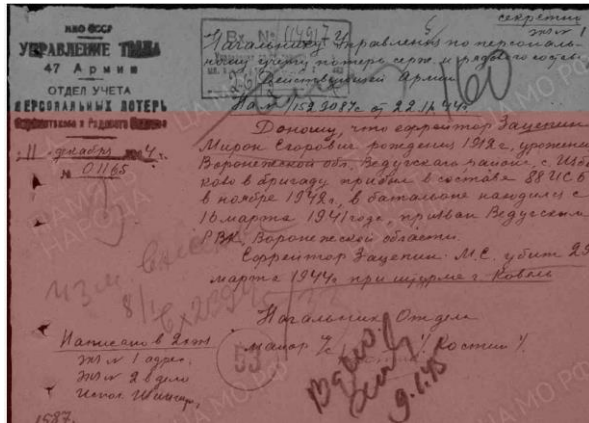 секретно
экз № 1
НКО СССР
УПРАВЛЕНИЕ ТЫЛА
47 Армии
ОТДЕЛ УЧЕТА
ПЕРСОНАЛЬНЫХ ПОТЕРЬ
Сержантского и Рядового Состава
"11" декабря 1944 г.
№ 01165
Вх. №
Начальнику Управления по персональ-
ному учету потерь серж. и рядового состава
Действующей Армии
160
На № 152.3087с от 22.11.44г
Доношу, что ефрейтор Зацепин
Мирон Егорович рождения 1912 г, уроженец
Воронежской обл, Ведугского района, с. Избы
ково в бригаду прибыл в составе 88 ИСБ
в ноябре 1942г, в батальоне находился с
16 марта 1941 года, призван Ведугским
РВК, Воронежской области.
Ефрейтор Зацепин М.Е. убит 29
марта 1944г при штурме г. Ковель
Начальник Отдела
майор /с Костин /
Написано в 2 экз
экз № 1 адрес.
экз № 2 в дело
53
9.1.45
1587.
ЦАМО РФ